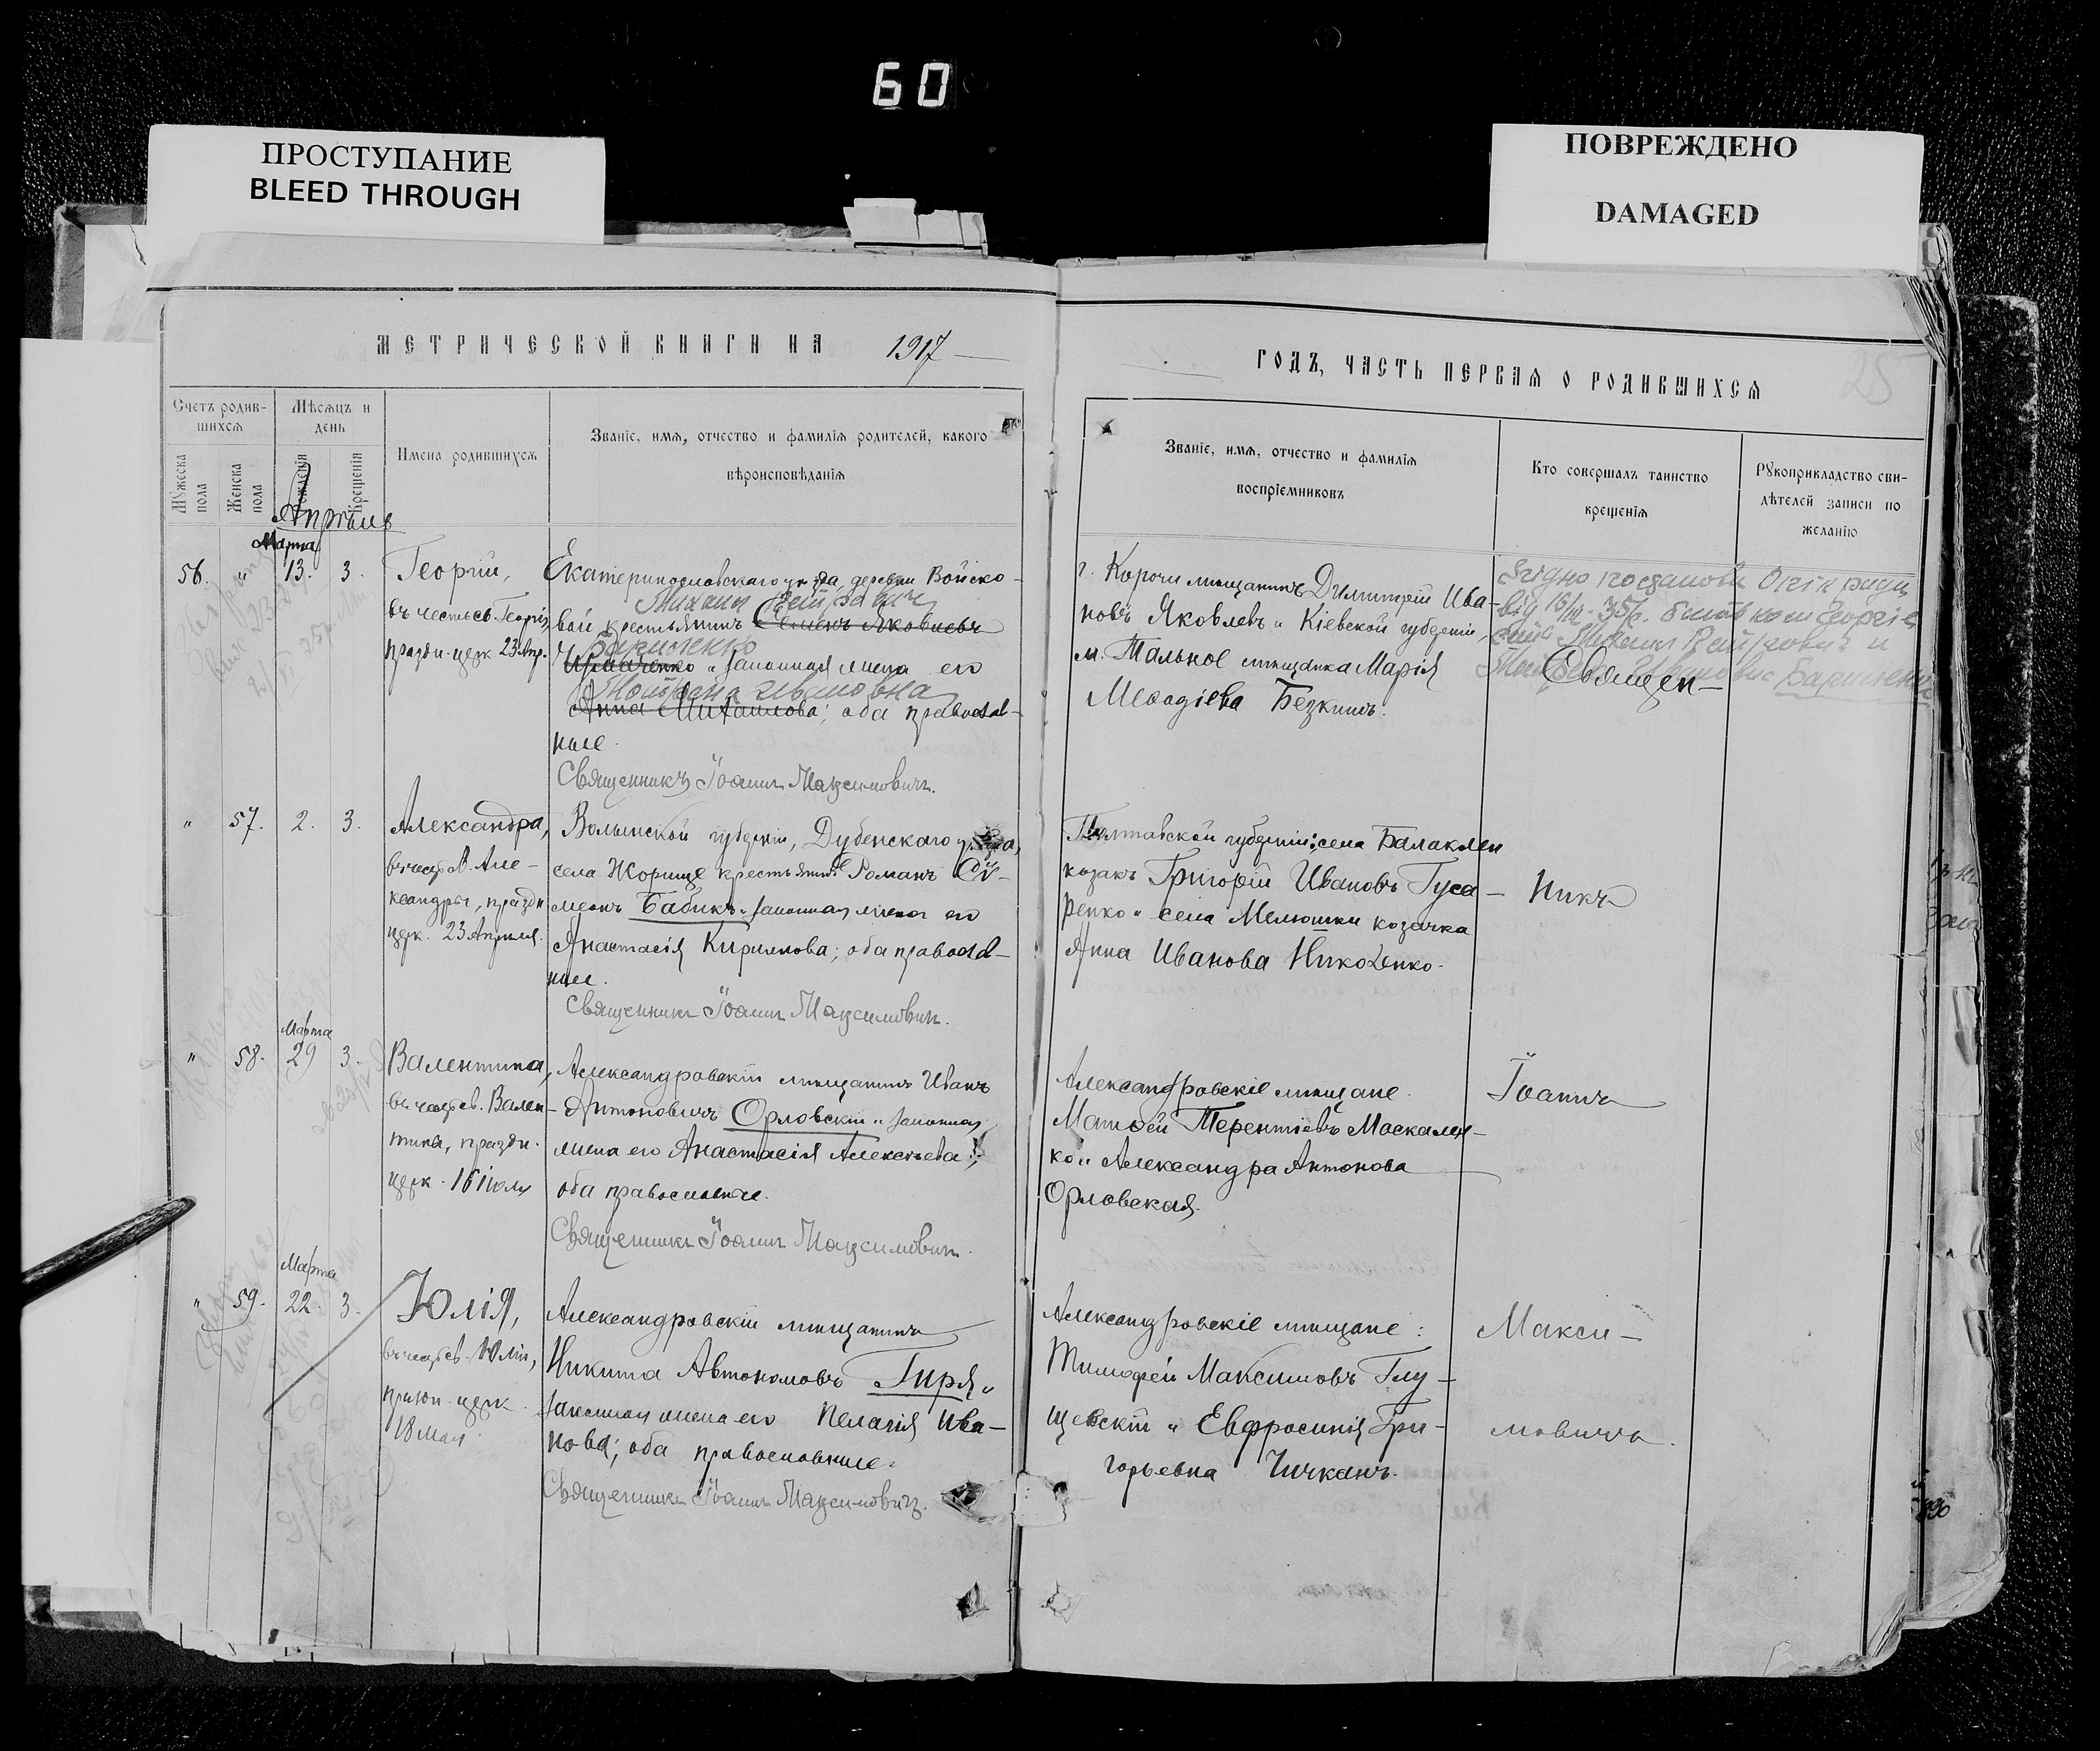 60
ПРОСТУПАНИЕ
BLEED THROUGH
ПОВРЕЖДЕНО
DAMAGED
МЕТРИЧЕСКОЙ КНИГИ НА 1917
Счетъ родив-
шихся
Мѣсяцъ и
день
Мужеска
пола
Женска
пола
Рожденія
Крещенія
Имена родившихся
Званіе, имя, отчество и фамилія родителей, какого
вѣроисповѣданія
Апрѣль
Марта
56. " 13. 3.
Георгій,
въ честь св. Георгія,
праздн. церк. 23 Апр.
Екатеринославскаго уѣзда, деревни Войско-
вой крестьянинъ Семенъ Яковлевъ
законная жена его
Анна Михаилова; оба православ-
ные.
Священникъ Іоаннъ Максимовичъ.
" 57. 2. 3.
Александра,
въ честь св. Але-
ксандры, праздн.
церк. 23 Апрѣля.
Волынской губерніи, Дубенскаго уѣзда,
села Жорнище крестьянинъ Романъ Си-
меонъ Бабикъ и законная жена его
Анастасія Кирилова; оба православ-
ные.
Священникъ Іоаннъ Максимовичъ.
Марта
" 58. 29 3.
Валентина,
въ честь св. Вален-
тины, праздн.
церк. 16 Іюля
Александровскій мѣщанинъ Иванъ
Антоновичъ Орловскій и законная
жена его Анастасія Алексѣева;
оба православные.
Священникъ Іоаннъ Максимовичъ.
Марта
" 59. 22. 3.
Юлія,
въ честь св. Юліи,
праздн. церк.
18 Мая
Александровскій мѣщанинъ
Никита Автономовъ Гиря и
законная жена его Пелагія Ива-
нова; оба православные.
Священникъ Іоаннъ Максимовичъ.
ГОДЪ, ЧАСТЬ ПЕРВАЯ О РОДИВШИХСЯ
25
Званіе, имя, отчество и фамилія
воспріемниковъ
Кто совершалъ таинство
крещенія
Рукоприкладство сви-
дѣтелей записи по
желанію
г. Корочи мѣщанинъ Димитрій Ива-
новъ Яковлевъ и Кіевской губерніи,
м. Тальное мѣщанка Марія
Меѳодіева Безкинъ.
Священ-
Полтавской губерніи: села Балаклеи
козакъ Григорій Ивановъ Гуса-
ренко и села Мелюшки козачка
Анна Иванова Николенко.
никъ
Александровскіе мѣщане
Матѳей Терентіевъ Москален-
ко и Александра Антонова
Орловская.
Іоаннъ
Александровскіе мѣщане:
Тимофей Максимовъ Глу-
щевскій и Евфросинія Гри-
горьевна Чичканъ.
Макси-
мовичъ.